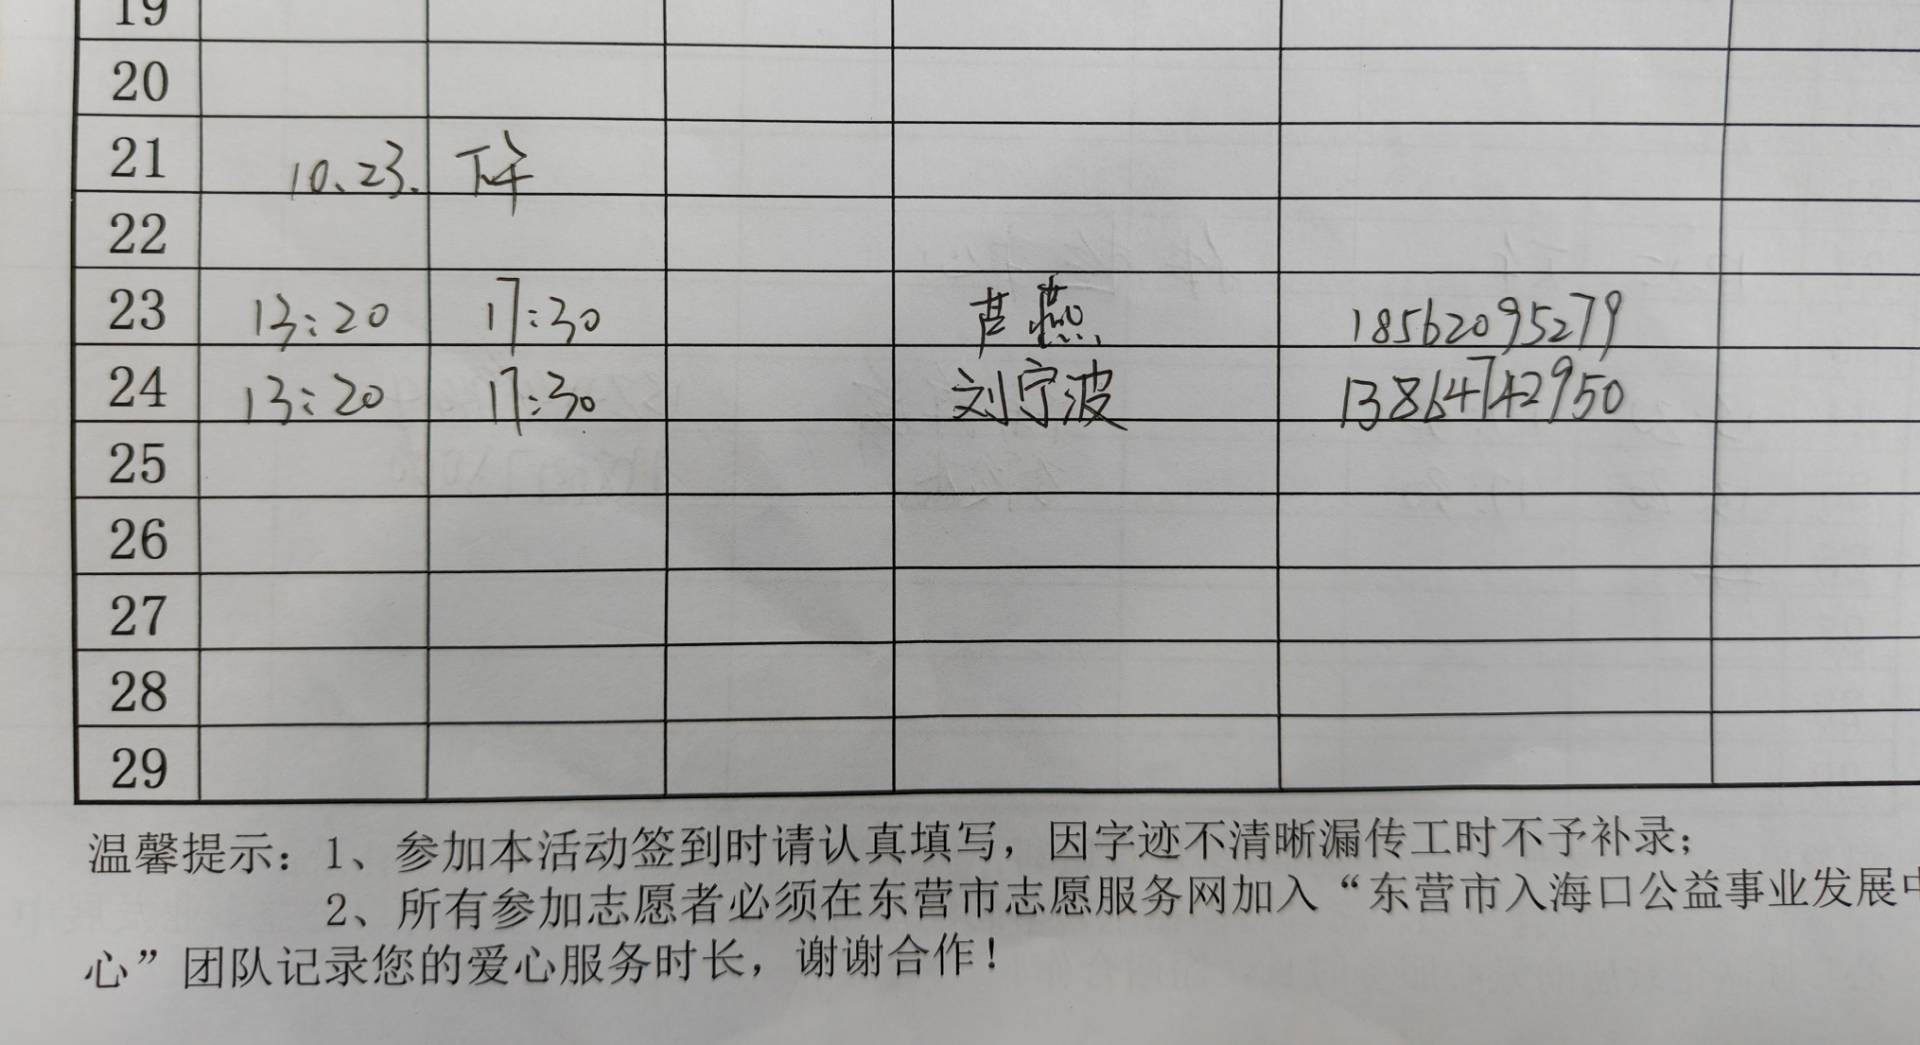 19
20
21 10.23. 下午
22
23 13:20 17:30 芦燕 18562095279
24 13:20 17:30 刘宁波 13864742950
25
26
27
28
29
温馨提示：1、参加本活动签到时请认真填写，因字迹不清晰漏传工时不予补录；
2、所有参加志愿者必须在东营市志愿服务网加入“东营市入海口公益事业发展中
心”团队记录您的爱心服务时长，谢谢合作！